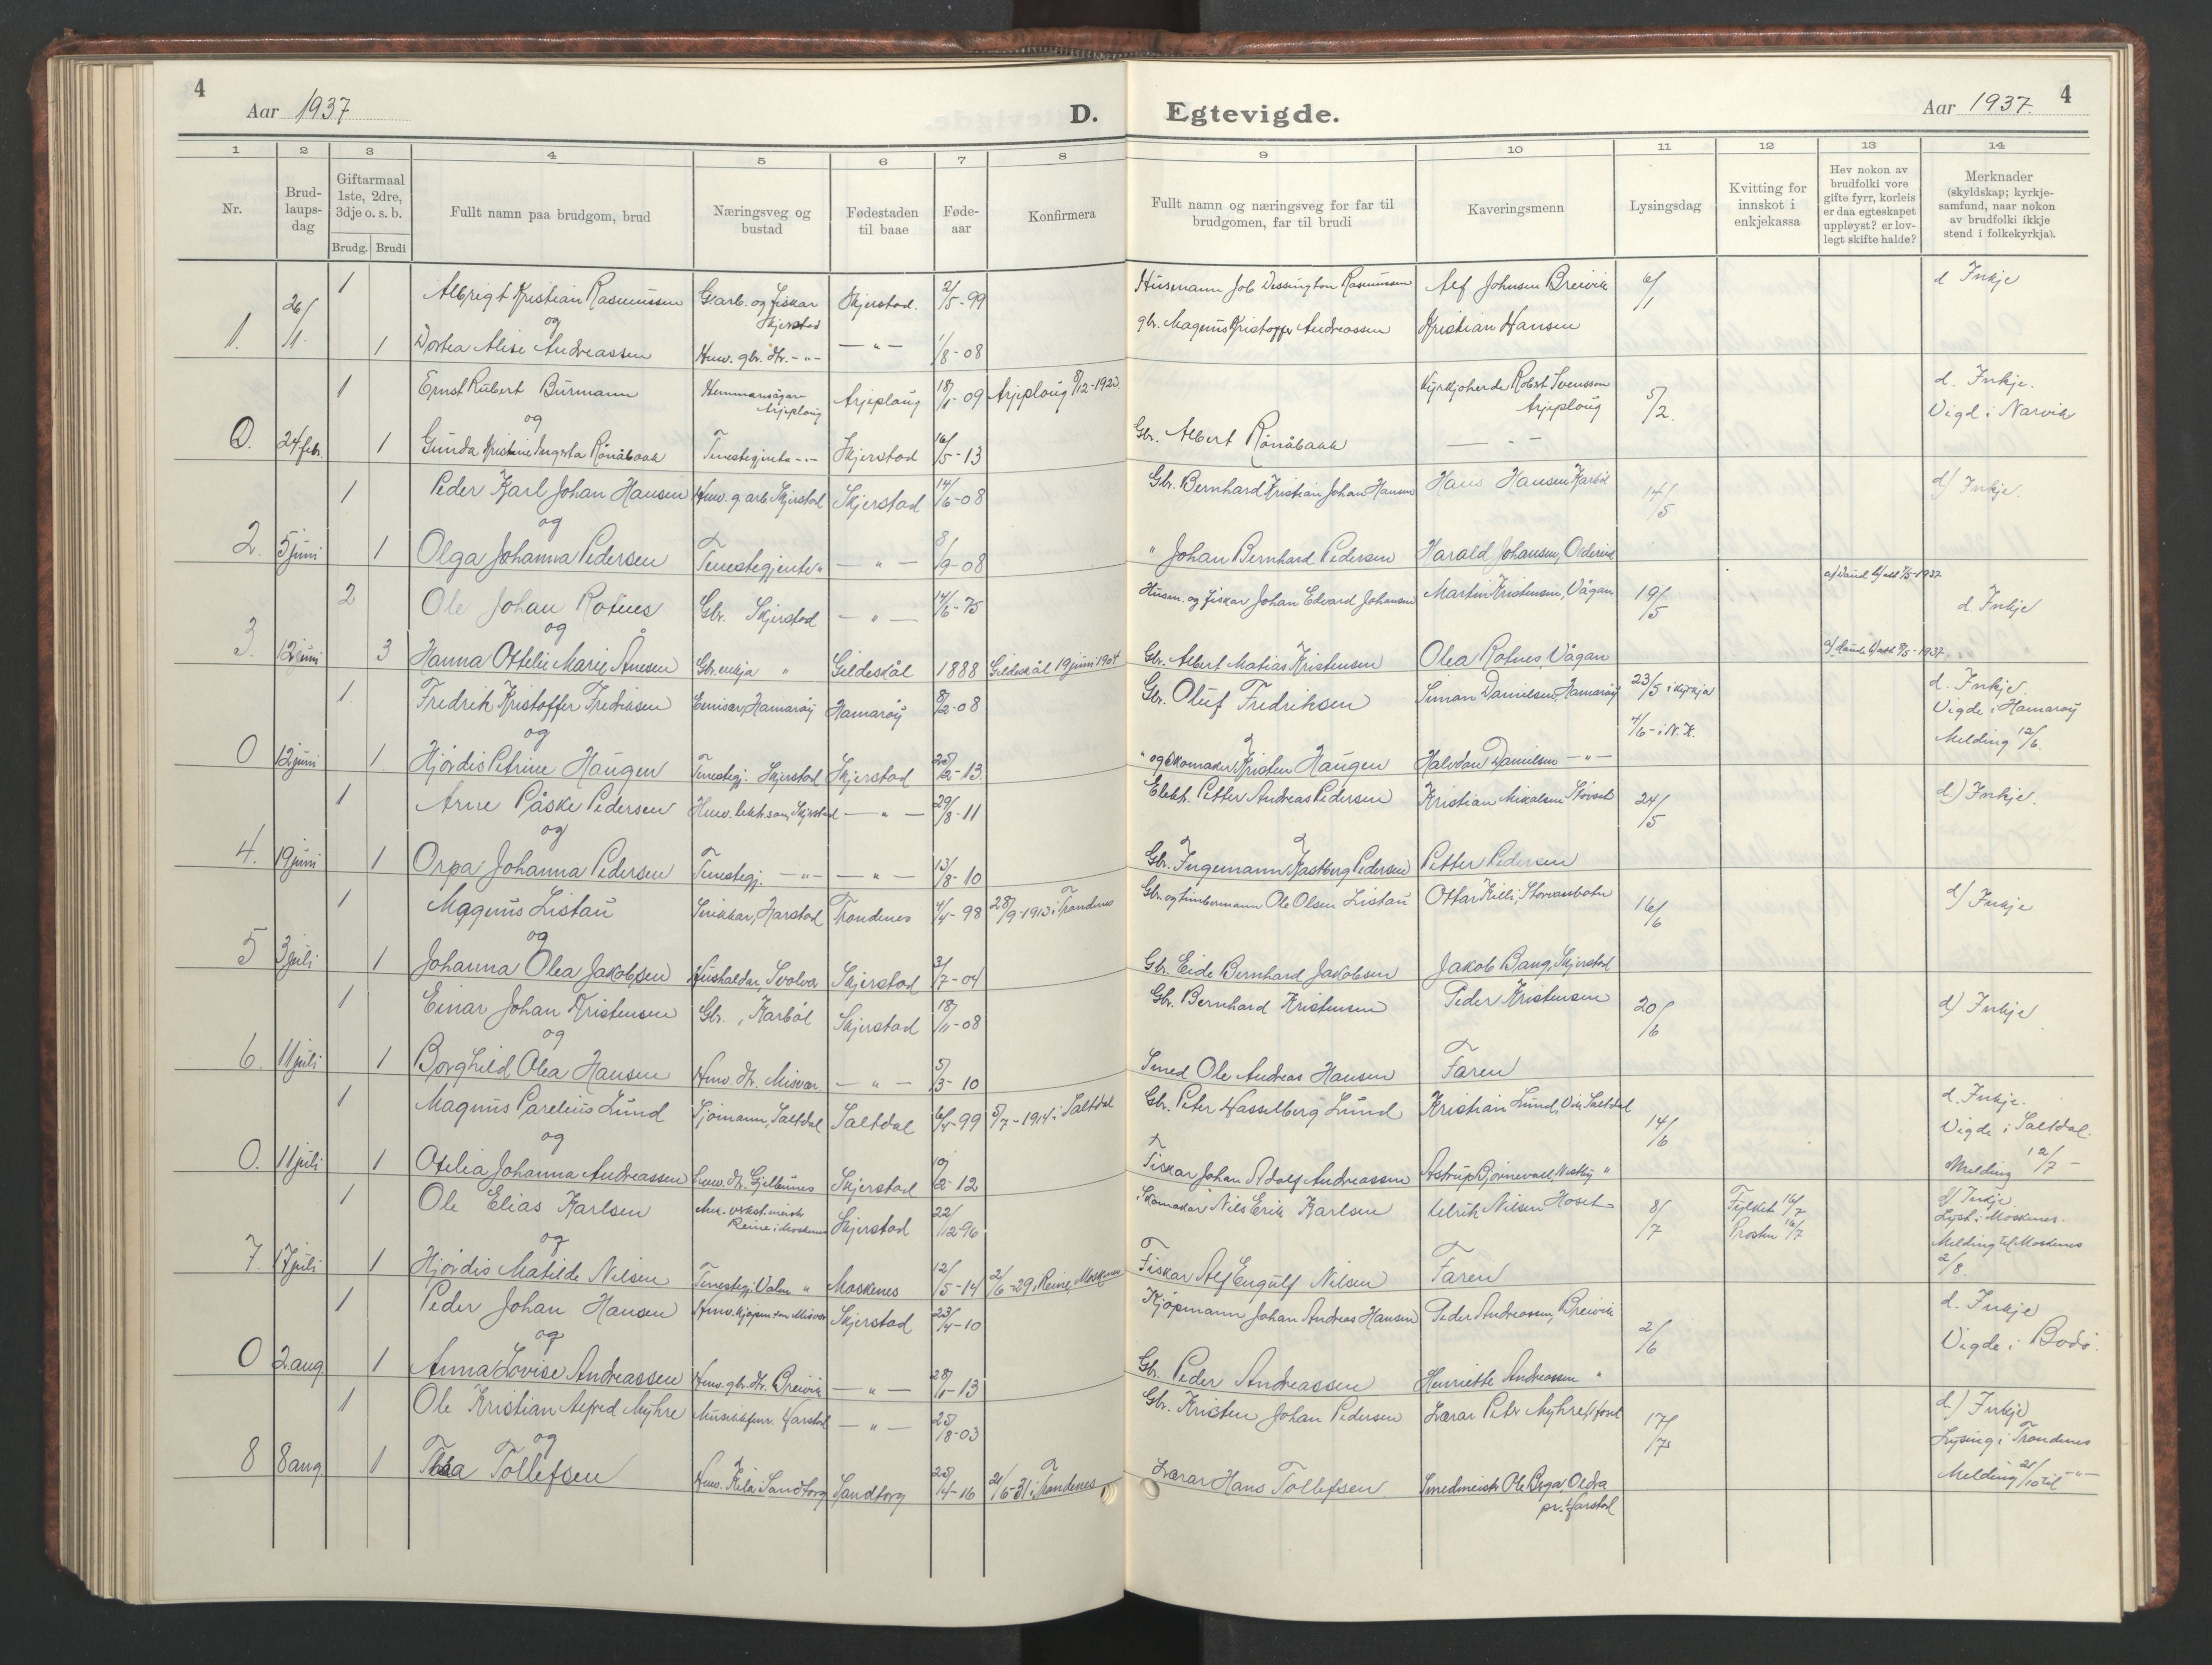 4
Aar 1937
D.
1 2 3 4 5 6 7 8
Nr.
Brud-
laups-
dag
Giftarmaal
1ste, 2dre,
3dje o. s. b.
Brudg. Brudi
Fullt namn paa brudgom, brud
Næringsveg og
bustad
Fødestaden
til baae
Føde-
aar
Konfirmera
1. 26/1 1 Albrigt Kristian Rasmussen Skjerstad. 2/5-99
og
1 Dortea Alise Andreassen Huv. gbr. dtr. -"- -"- 1/8-08
0. 24 feb. 1 Ernst Rubert Burmann Hemmansägar Arjeploug Arjeploug 18/1-09 Arjeploug
og
1 Gunda Kristine Ingerta Rönåbakk Tenestegjenta -"- Skjerstad 16/5-13
2. 5 juni 1 Peder Karl Johan Hansen Huv. g arb Skjerstad Skjerstad 14/6-08
og
1 Olga Johanna Pedersen Tenestegjente " -"- 8/9-08
3. 12 juni 2 Ole Johan Rotnes Gbr. Skjerstad -"- 14/6-75
og
3 Hanna Ottelie Marie Ånesen Gbr. enkja " Gildeskål 1888 Gildeskål 19 juni 1904
0 12 juni 1. Fredrik Kristoffer Fredriksen Emisær, Hamarøy Hamarøy 8/2-08
og
1. Hjørdis Petrine Haugen Tenestegj. Skjerstad Skjerstad 25/12-13.
4. 19 juni 1 Arne Påske Pedersen -"- 29/8-11
og
1 Orpa Johanna Pedersen Tenestegj. -"- -"- 13/8-10
5 3 juli 1 Magnus Listau Snikkar, Harstad Trondenes 4/4-98 28/9-1913 i Trondenes
og
1 Johanna Olea Jakobsen Hushaldar, Svolvær Skjerstad 3/7-04
6. 11 juli 1 Einar Johan Kristensen Gbr., Karbøl Skjerstad 18/11-08
og
1 Borghild Olea Hansen Huv. dtr. Misvær -"- 5/3-10
0. 11 juli 1 Magnus Parelius Lund Sjömann, Saltdal Saltdal 6/4-99 5/7-1914 i Saltdal
og
1 Otelia Johanna Andreassen Skjerstad 10/2-12
7. 17 juli 1 Ole Elias Karlsen Reine i Moskenes Skjerstad 22/12-96
og
1 Hjördis Matilde Nilsen Tenestegj. Valen " Moskenes 12/5-14 2/6-29, Reine, Moskenes
0 2. aug. 1 Peder Johan Hansen Skjerstad 23/4-10
og
1 Anna Lovise Andreassen Huv. gbr. dtr. Breivik -"- 28/1-13
8 8 aug 1 Ole Kristian Alfred Myhre Harstad -"- 25/8-03
og
1 Thea Tollefsen Sandtorg Sandtorg 25/4-16 21/6-31 i Trondenes
Egtevigde.
Aar 1937.
4
9 10 11 12 13 14
Fullt namn og næringsveg for far til
brudgomen, far til brudi
Kaveringsmenn
Lysingsdag
Kvitting for
innskot i
enkjekassa
Hev nokon av
brudfolki vore
gifte fyrr, korleis
er daa egteskapet
uppløyst? er lov-
legt skifte halde?
Merknader
(skyldskap; kyrkje-
samfund, naar nokon
av brudfolki ikkje
stend i folkekyrkja).
Husmann Job Dessington Rasmussen Alf Johnsen Breivik 6/1 d Inkje
gbr. Magnus Kristoffer Andreassen Kristian Hansen
Kyrkjoherde Robert Svensson Arjeploug 5/2. d. Inkje. Vigd i Narvik
Gbr. Albert Rönåbakk -"-
Gbr. Bernhard Kristian Johan Hansen Hans Hansen Karbøl 14/5 d) Inkje.
" Johan Bernhard Pedersen Harald Johansen,
Husm. og fiskar Johan Edvard Johansen Martin Kristensen, Vågan 19/5 d. Inkje
Gbr. Albert Matias Kristensen Olea Rotnes, Vågan
Gbr. Oluf Fredriksen Simon Danielsen, Hamarøy 23/5 i kyrkja d. Inkje. Vigde i Hamarøy
4/6 - i N.K. Melding 12/6.
" og skomaker Kristen Haugen Halvdan Danielsen -"-
Petter Andreas Pedersen Kristian Mikalsen Storset 24/5 d.) Inkje.
Gbr. Ingemann Kastberg Pedersen Petter Pedersen
Gbr. og timbermann Ole Olsen Listau Ottar Killi, 16/6 d) Inkje
Gbr. Eide Bernhard Jakobsen Jakob Bang, Skjerstad
Gbr. Bernhard Kristensen Peder Kristensen 20/6 d) Inkje
Smed Ole Andreas Hansen Faren
Gbr. Peter Hasselberg Lund Kristian Lund, Vik, Saltdal 14/6 d. Inkje. Vigde i Saltdal.
Melding 12/7 -
Fiskar Johan Adolf Andreassen
Skomakar Nils Erik Karlsen Ulrik Nilsen Hoset 8/7 Fylket 16/7 Prosten 16/7 d/ Inkje Lyst i Moskenes.
Melding til Moskenes 2/8.
Fiskar Alf Engulf Nilsen Faren
Kjöpmann Johan Andreas Hansen Peder Andreassen, Breivik 2/6 d. Inkje Vigde i Bodø.
Gbr. Peder Andreassen Henriette Andreassen "
Gbr. Kristen Johan Pedersen Lærar Petr Myhre, 17/7 d.) Inkje Lysing i Trondenes
Lærar Hans Tollefsen Smedmeistr Ole Melding 21/10 til -"-
pr. Harstad